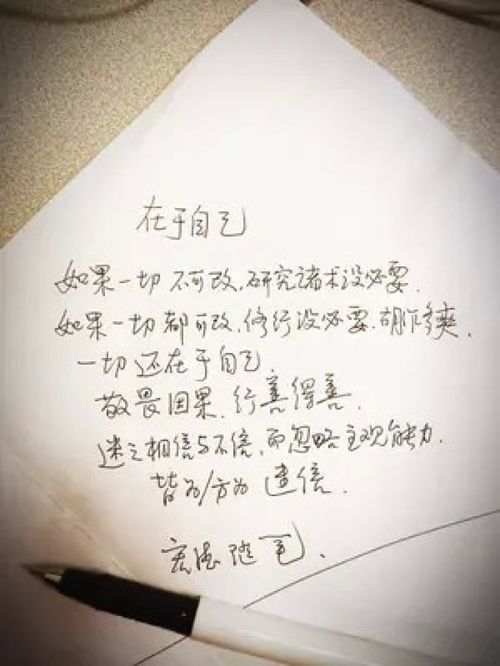 在于自己
如果一切不可改,研究诸术没必要.
如果一切都可改,修行没必要,胡作多爽.
一切还在于自己.
敬畏因果,行善得善.
迷之相信与不信,而忽略主观能力.
皆为/方为 遣信.
随笔.